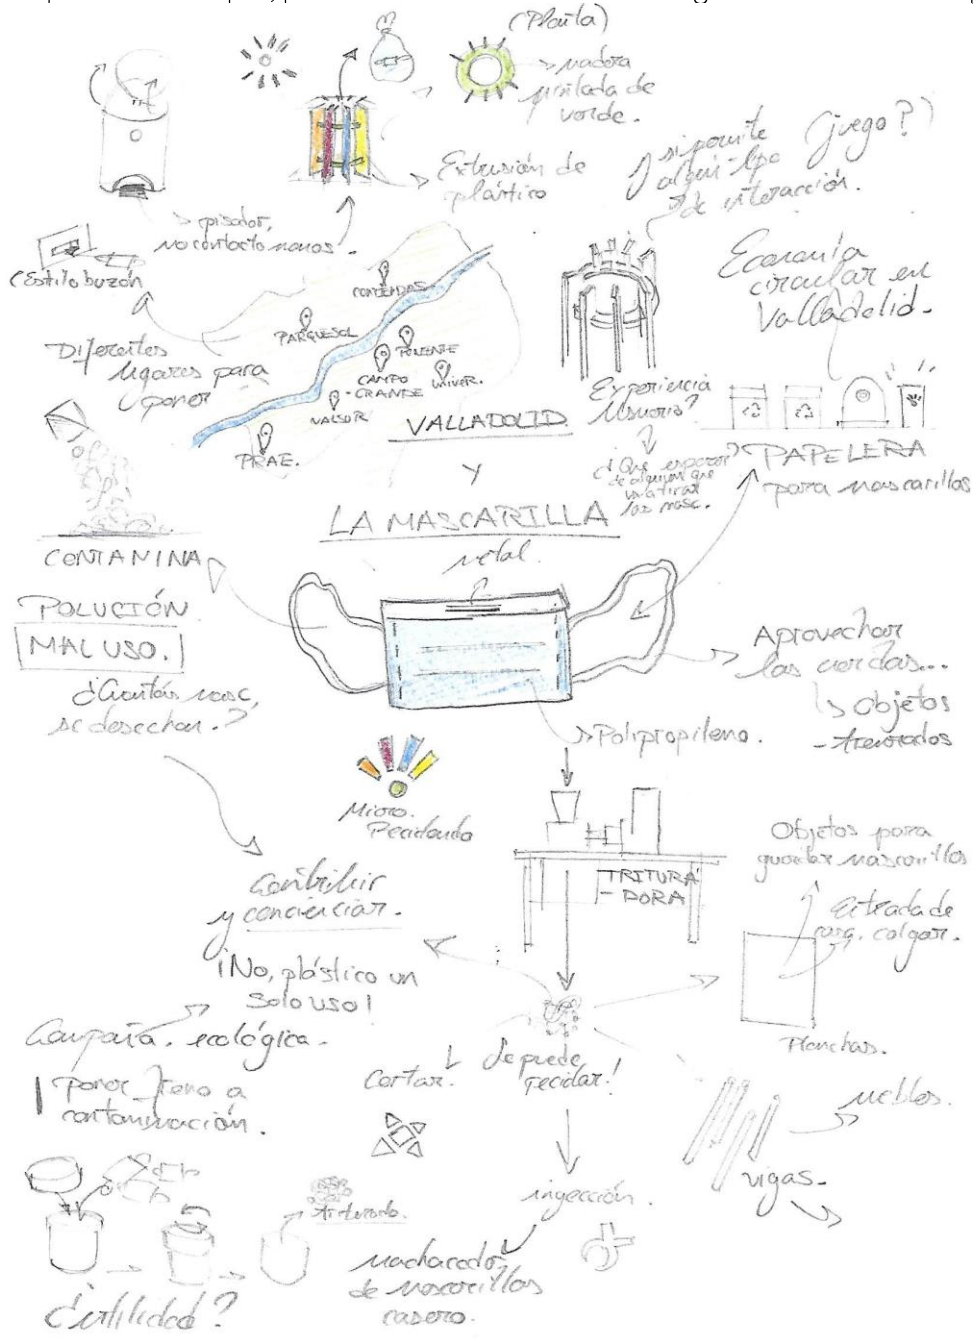 (Planta)
madera
pintada de
verde.
Extrusión de
plástico
si permite
algún tipo
de interacción.
(juego?)
pisador,
no contacto manos.
(Estilo buzón
Economía
circular en
Valladolid.
CONTIENDAS
PARQUESOL
PONIENTE
CAMPO
-GRANDE
UNIVER.
VALSUR
PRAE.
Diferentes
lugares para
poner
VALLADOLID
Y
LA MASCARILLA
Experiencia
Usuario?
¿Que esperar
de alguien que
va a tirar
las masc.
PAPELERA
para mascarillas
metal.
CONTAMINA
POLUCIÓN
MAL USO.
¿Cuántas masc,
se desechan.?
Aprovechar
las cuerdas...
Objetos
-trenzados
Polipropileno.
Micro.
Reciclando
TRITURA
-DORA
Objetos para
guardar mascarillas
colgar.
Planchas.
Contribuir
y concienciar.
¡No, plástico un
solo uso!
Campaña. ecológica.
poner freno a
contaminación.
Cortar.
Se puede
recidar!
muebles.
vigas.
ingección.
triturado.
machacador,
de mascarillas
casero.
¿utilidad?